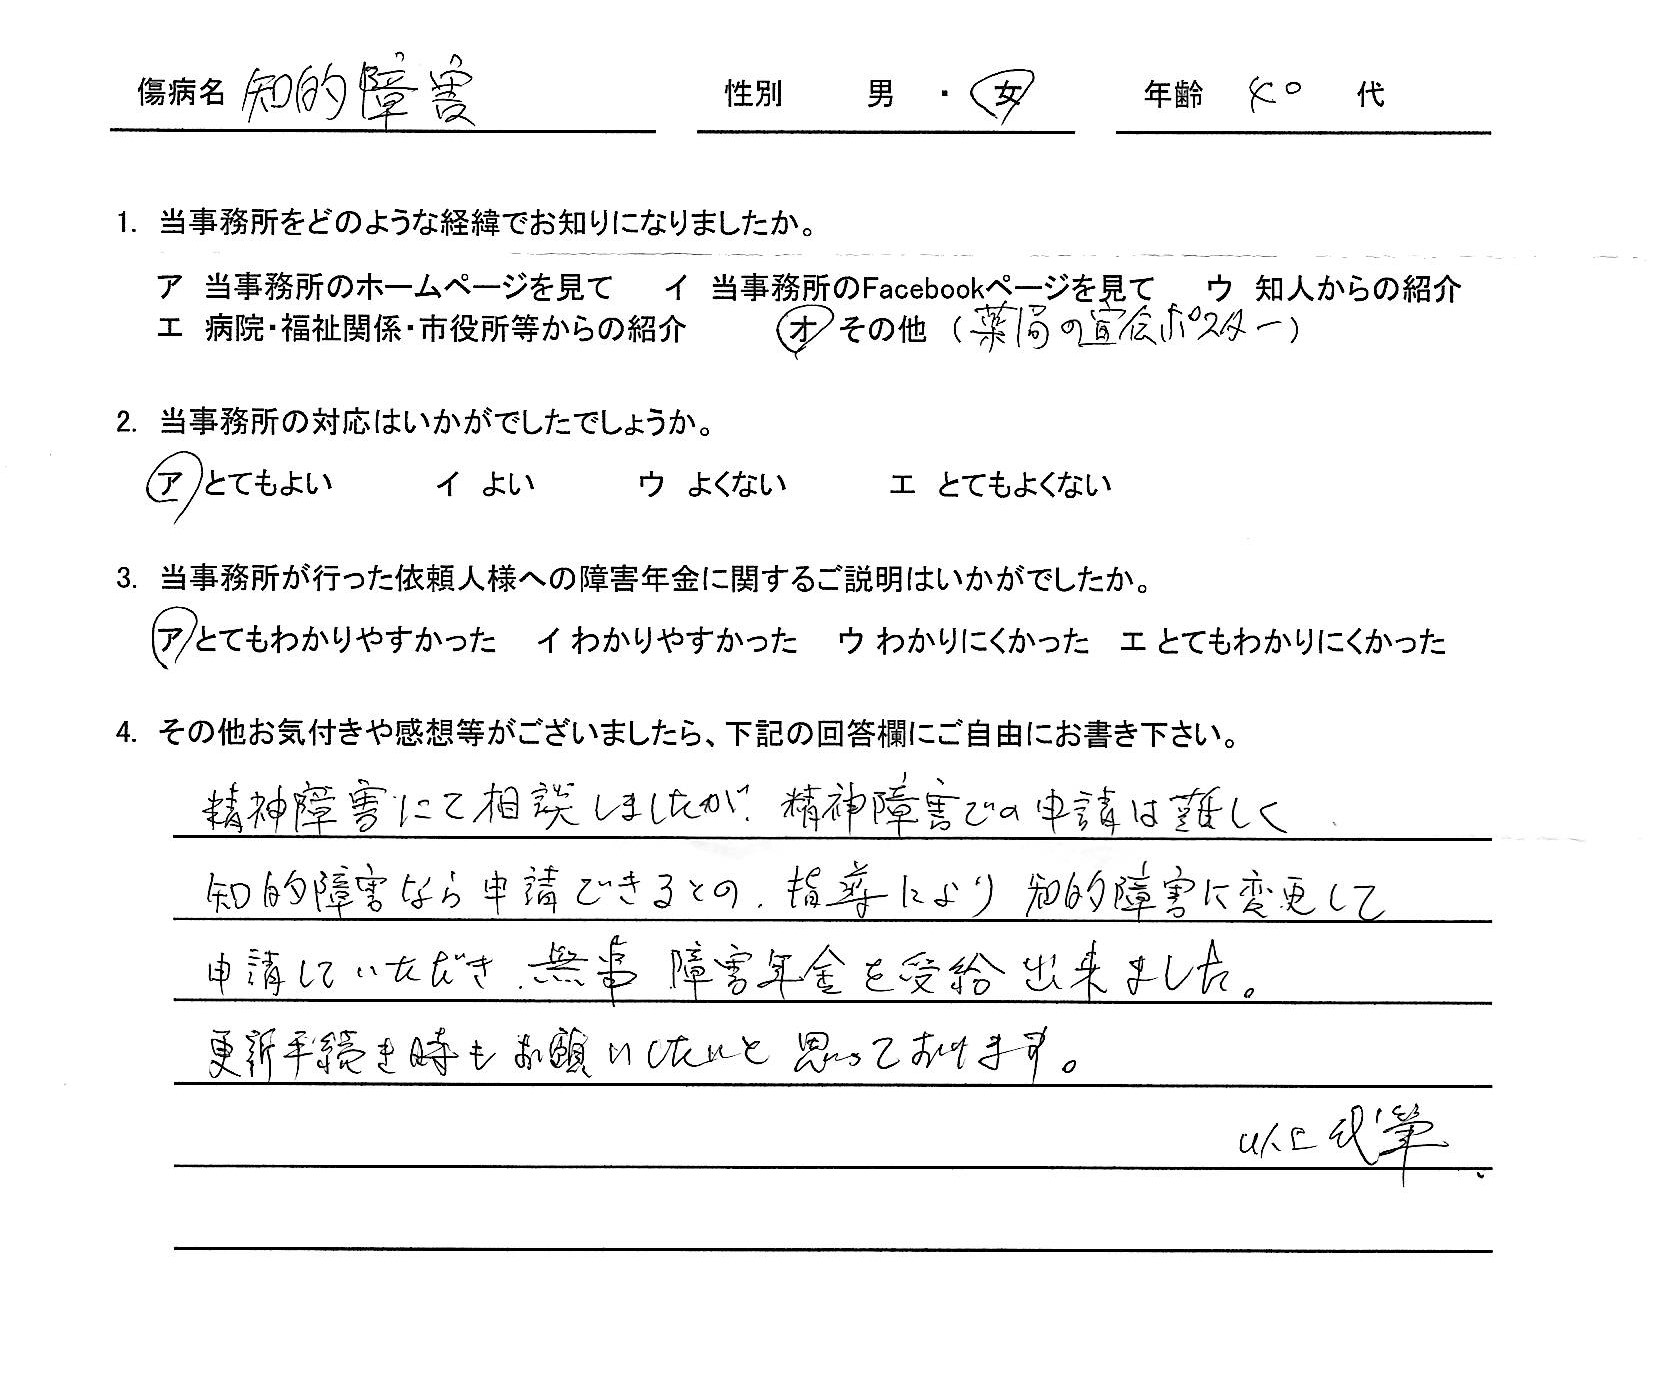 傷病名 知的障害 性別 男 ・ 女 年齢 40 代
1. 当事務所をどのような経緯でお知りになりましたか。
ア 当事務所のホームページを見て イ 当事務所のFacebookページを見て ウ 知人からの紹介
エ 病院・福祉関係・市役所等からの紹介 オ その他 (薬局の宣伝ポスター)
2. 当事務所の対応はいかがでしたでしょうか。
ア とてもよい イ よい ウ よくない エ とてもよくない
3. 当事務所が行った依頼人様への障害年金に関するご説明はいかがでしたか。
ア とてもわかりやすかった イ わかりやすかった ウ わかりにくかった エ とてもわかりにくかった
4. その他お気付きや感想等がございましたら、下記の回答欄にご自由にお書き下さい。
精神障害にて相談しましたが、精神障害での申請は難しく
知的障害なら申請できるとの、指導により 知的障害に変更して
申請していただき、無事 障害年金を受給出来ました。
更新手続き時もお願いしたいと思っております。
以上代筆